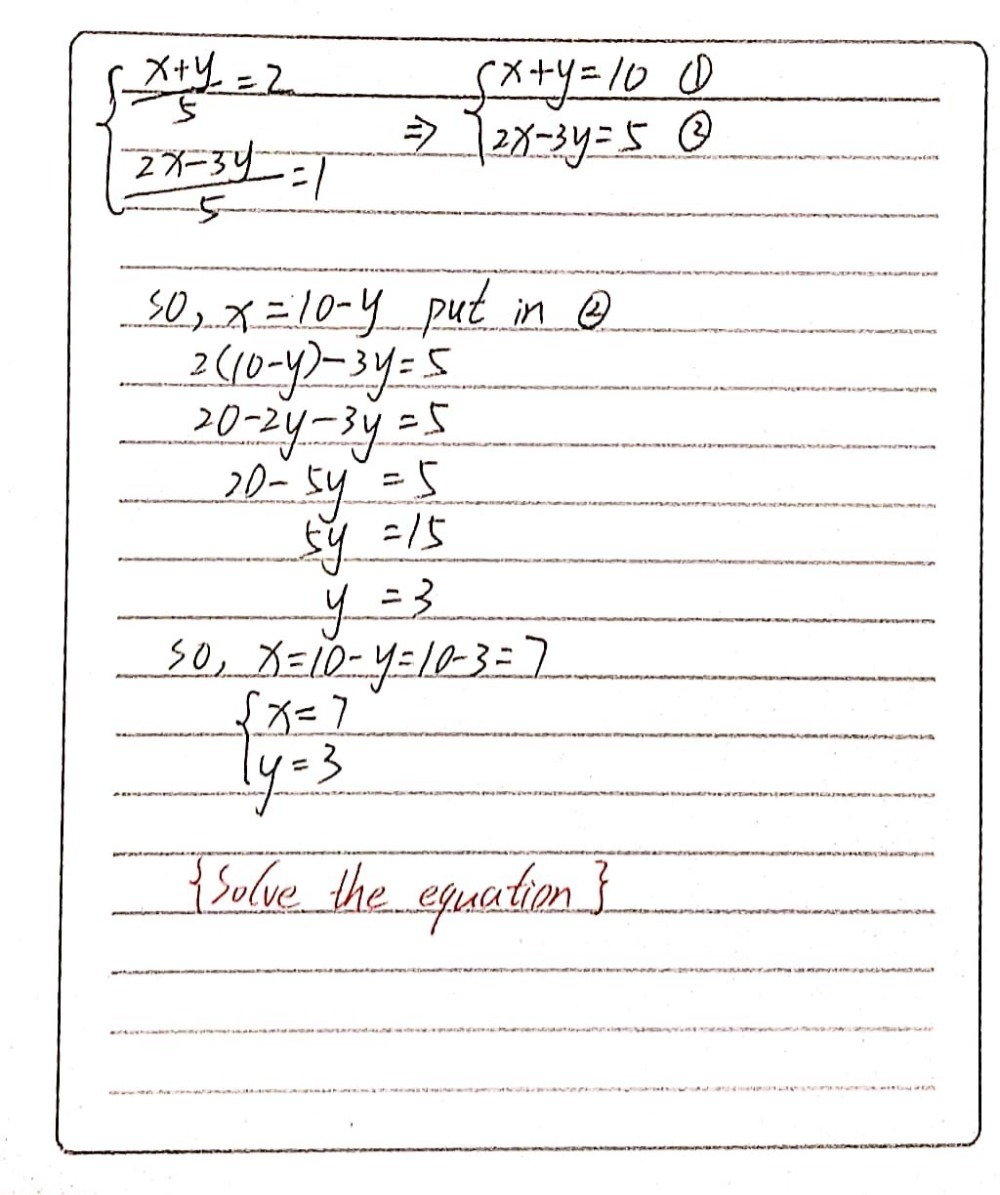 { x+y/5 = 2 ⇒ { x+y=10 ①
2x-3y/5 = 1 2x-3y=5 ②
so, x=10-y put in ②
2(10-y)-3y=5
20-2y-3y=5
20-5y=5
5y=15
y=3
so, x=10-y=10-3=7
{ x=7
y=3
{Solve the equation}